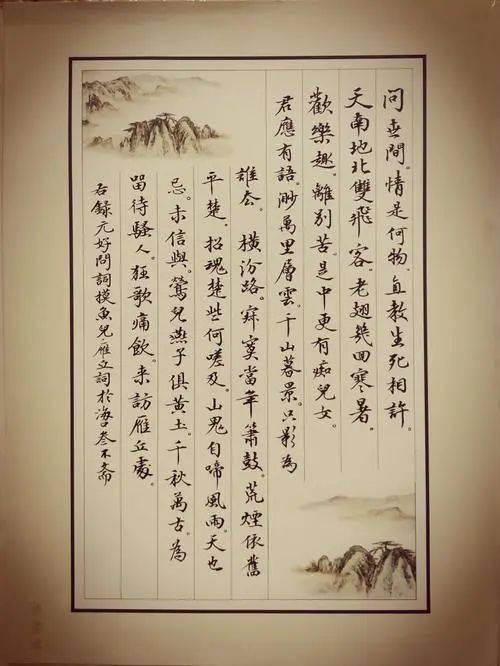 问世間。情是何物。直教生死相許。
天南地北雙飛客。老翅幾回寒暑。
歡樂趣。離别苦。是中更有痴兒女。
君應有語。渺萬里層雲。千山暮景。只影為
誰去。橫汾路。寂寞當年簫鼓。荒煙依舊
平楚。招魂楚些何嗟及。山鬼自啼風雨。天也
忌。未信與。鶯兒燕子俱黄土。千秋萬古。為
留待騷人。狂歌痛飲。来訪雁丘處。
右録元好問詞摸魚兒雁丘詞於海口叁不斋